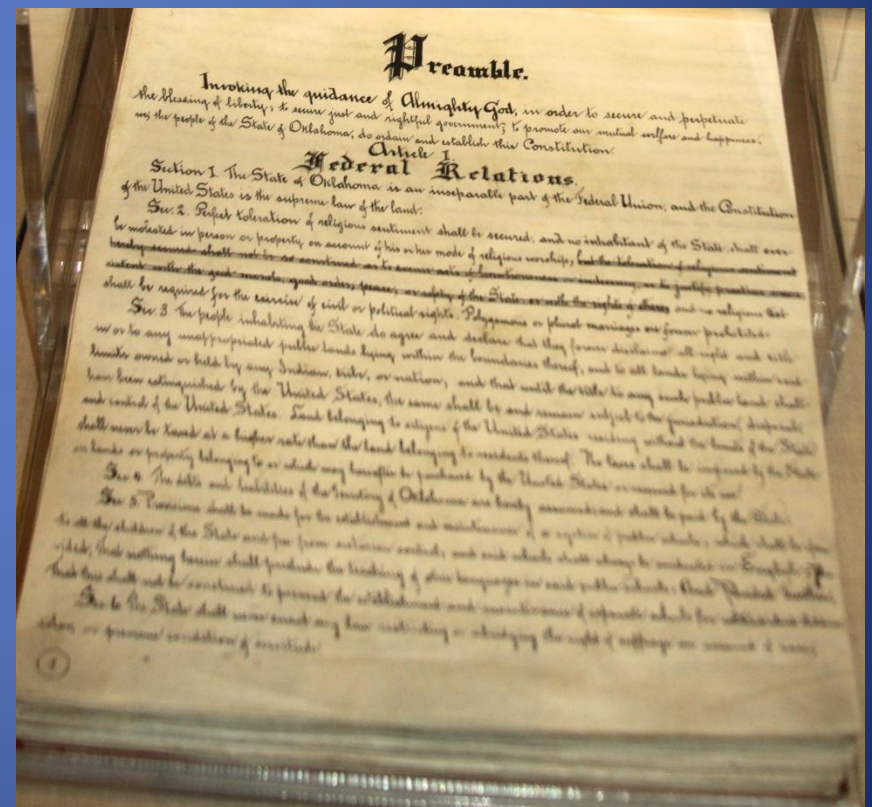 Preamble.
Invoking the guidance of Almighty God, in order to secure and perpetuate
the blessing of liberty; to secure just and rightful government; to promote our mutual welfare and happiness,
we, the people of the State of Oklahoma, do ordain and establish this Constitution.
Article I.
Federal Relations.
Section 1. The State of Oklahoma is an inseparable part of the Federal Union, and the Constitution
of the United States is the supreme law of the land.
Sec. 2. Perfect toleration of religious sentiment shall be secured, and no inhabitant of the State shall ever
be molested in person or property, on account of his or her mode of religious worship, but the toleration of religious sentiment
hereby secured shall not be so construed as to excuse acts of licentiousness or indecency, or to justify practices
with the good morals, good order, peace, or safety of the State, or with the rights of others, and no religious test
shall be required for the exercise of civil or political rights. Polygamous or plural marriages are forever prohibited.
Sec. 3. The people inhabiting the State do agree and declare that they forever disclaim all right and title
in or to any unappropriated public lands lying within the boundaries thereof, and to all lands lying within said
limits owned or held by any Indian, tribe, or nation; and that until the title to any such public land shall
have been extinguished by the United States, the same shall be and remain subject to the jurisdiction, disposal,
and control of the United States. Land belonging to citizens of the United States residing without the limits of the State
shall never be taxed at a higher rate than the land belonging to residents thereof. No taxes shall be imposed by the State
on lands or property belonging to or which may hereafter be purchased by the United States or reserved for its use.
Sec 4. The debts and liabilities of the Territory of Oklahoma are hereby assumed, and shall be paid by the State.
Sec 5. Provisions shall be made for the establishment and maintenance of a system of public schools, which shall be open
to all the children of the State and free from sectarian control; and said schools shall always be conducted in English: Pro-
vided, that nothing herein shall preclude the teaching of other languages in said public schools: And Provided Further,
that this shall not be construed to prevent the establishment and maintenance of separate schools for
Sec 6. The State shall never enact any law restricting or abridging the right of suffrage on account of race,
color, or previous condition of servitude.
1